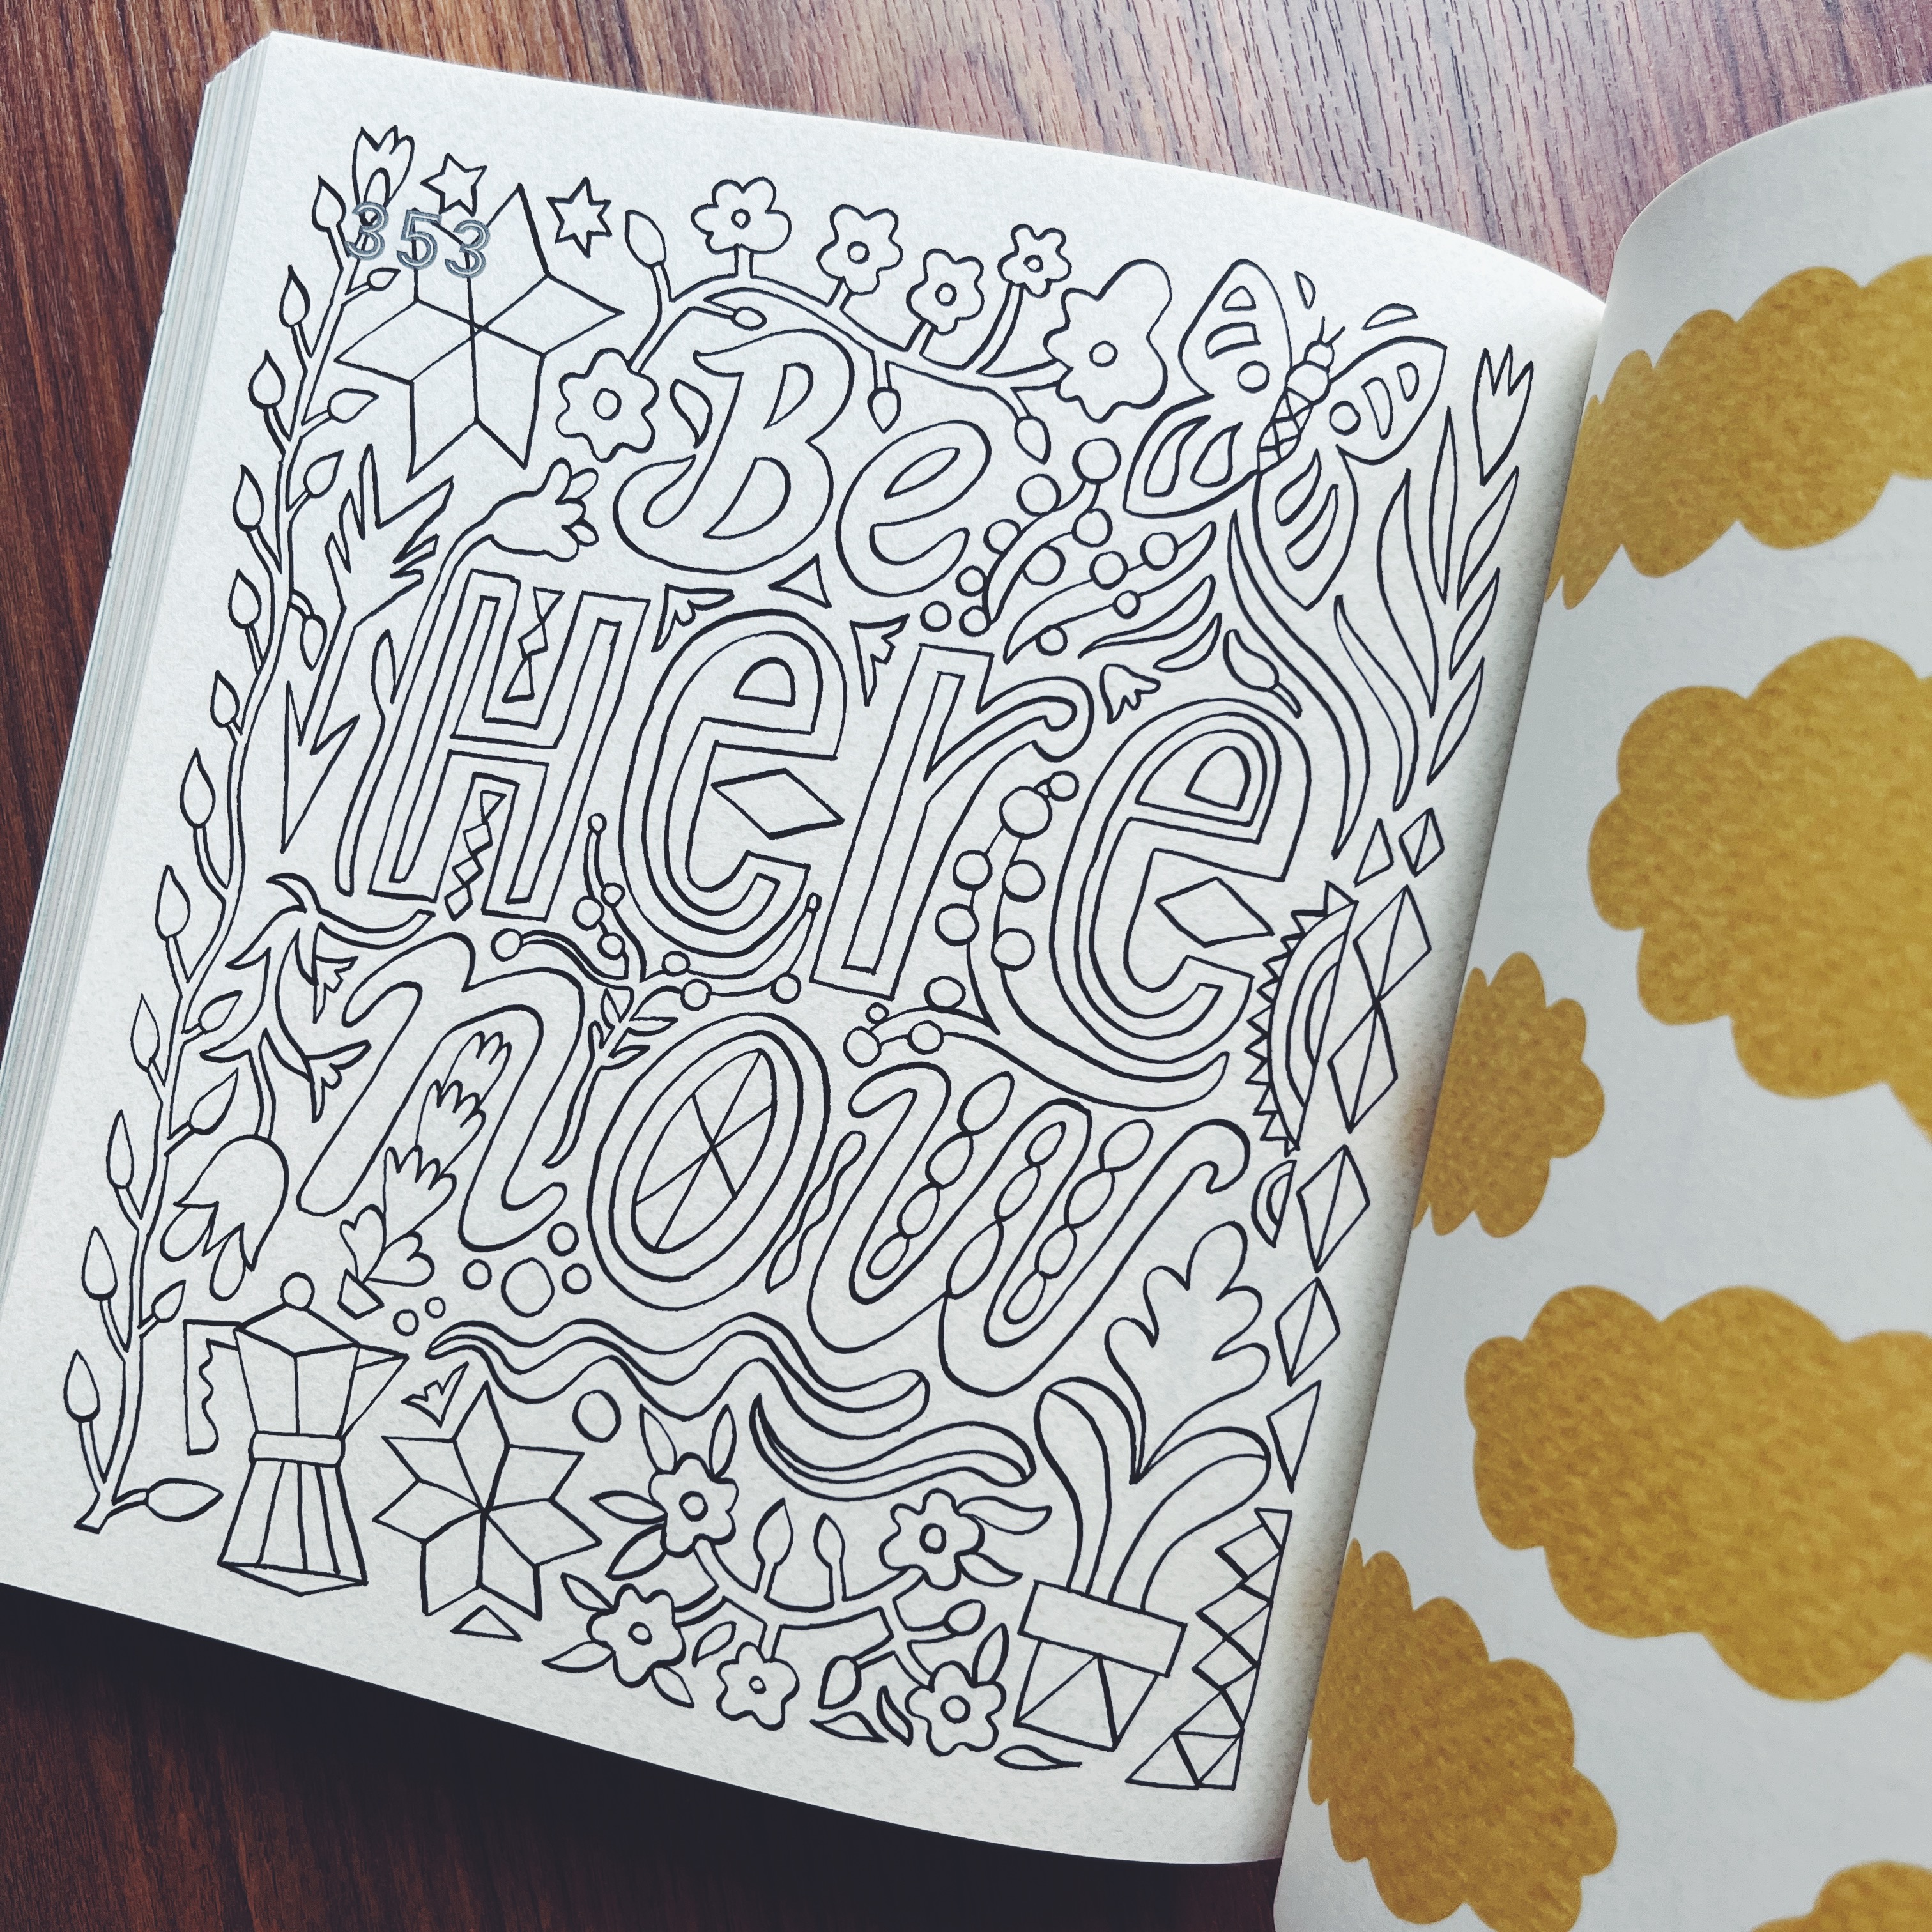 353
Be
Here
now